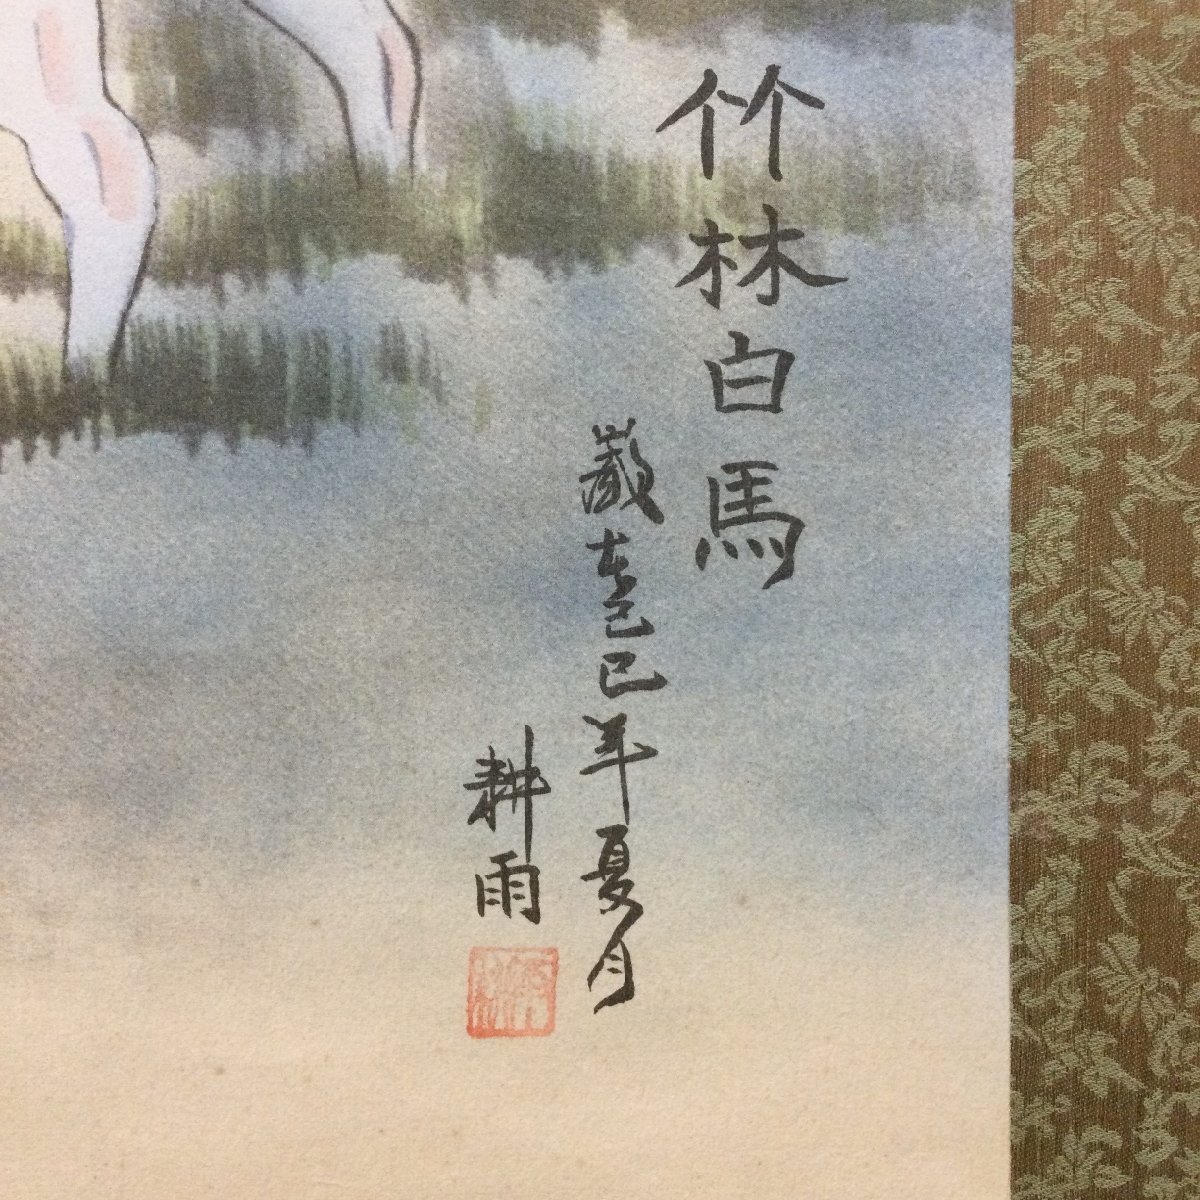 竹林白馬
歳在己巳年夏月
耕雨